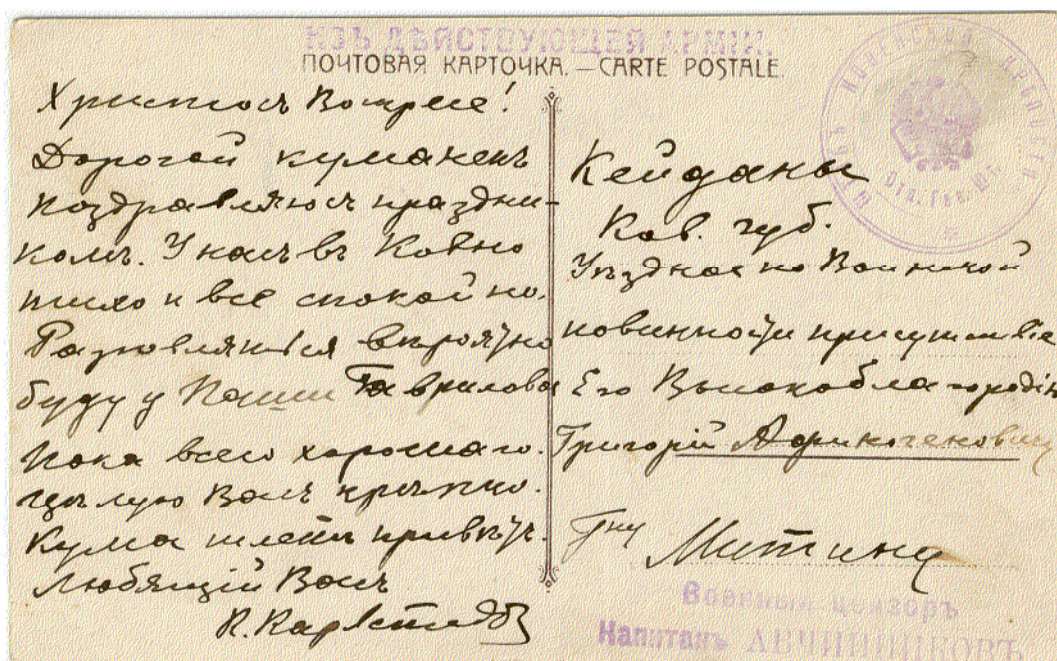 ИЗЪ ДѢЙСТВУЮЩЕЙ АРМІИ.
ПОЧТОВАЯ КАРТОЧКА. — CARTE POSTALE.
Христосъ Воскресе!
Дорогой куманекъ
поздравляю съ праздни-
комъ. У насъ въ Ковно
тихо и все спокойно.
Разговляться вѣроятно
буду у Паши Гаврилова
Пока всего хорошаго.
Цѣлую Васъ крѣпко.
Кума шлетъ привѣтъ.
Любящій Васъ
Кейданы
Ков. губ.
Уѣздное по Воинской
повинности присутствіе
Его Высокоблагородію
Григорій
Гну Митину
Военный цензоръ
Капитанъ